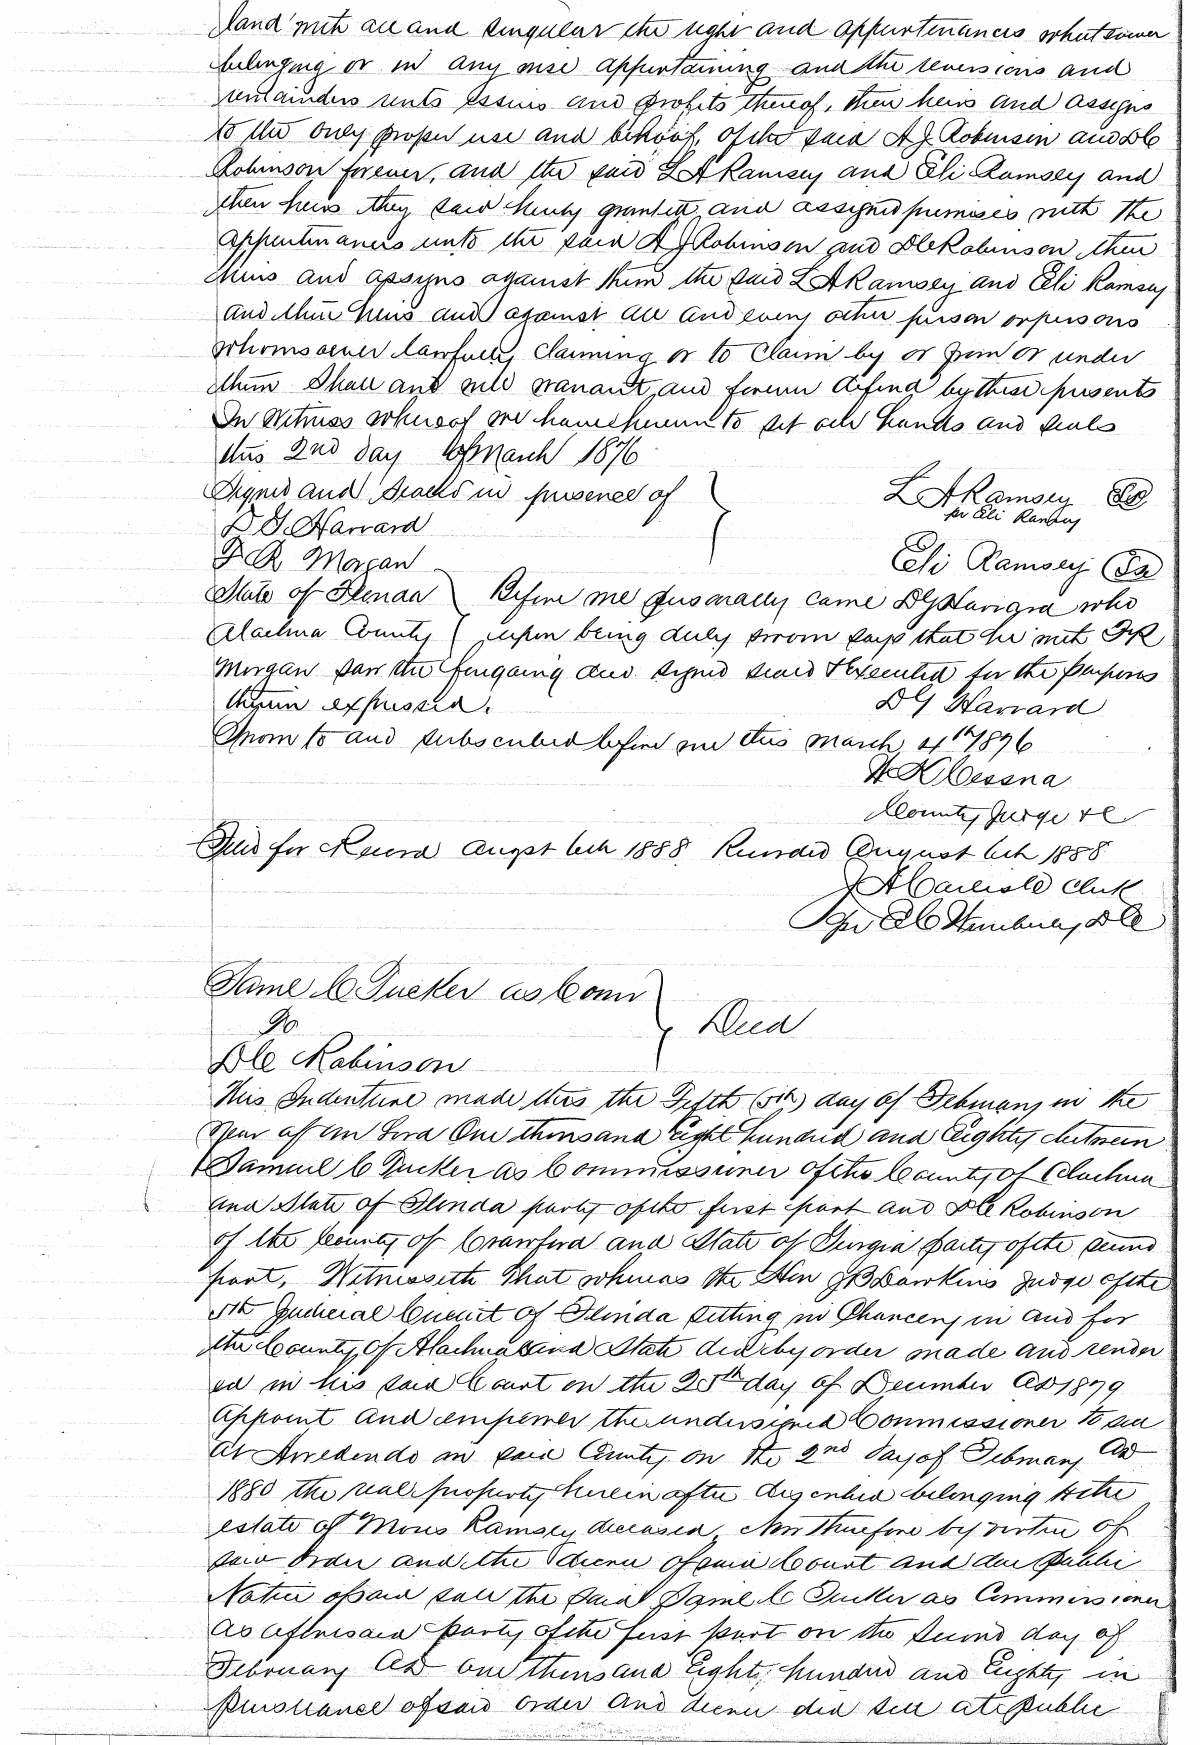 land with all and singular the right and appurtenances whatsoever
belonging or in any wise appertaining and the reversions and
remainders rents issues and profits thereof, their heirs and assigns
to the only proper use and behoof, of the said A J Robinson and D C
Robinson forever, and the said L A Ramsey and Eli Ramsey and
their heirs they said hereby granted and assigned premises with the
appertinances unto the said A J Robinson and D C Robinson their
heirs and assigns against them the said L A Ramsey and Eli Ramsey
and their heirs and against all and every other person or persons
whomsoever lawfully claiming or to claim by or from or under
them shall and will warrant and forever defend by these presents
In Witness whereof we have hereunto set our hands and seals
this 2nd day of March 1876
Signed and Sealed in presence of } L A Ramsey
pr Eli Ramsey
D G Harvard
F R Morgan Eli Ramsey
State of Florida } Before me personally came D G Harvard who
Alachua County { upon being duly sworn says that he with F R
Morgan saw the foregoing deed signed seald & Executed for the purposes
therein expressed. D G Harvard
Sworn to and subscribed before me this March 4th 1876
H K Cessna
County Judge & C
Filed for Record Augst 6th 1888 Recorded August 6th 1888
J A Carlisle Clerk
Per D C
Same C Tucker as Comr }
To } Deed
D C Robinson
This Indenture made this the Fifth (5th) day of February in the
Year of our Lord One thousand Eight hundred and Eighty between
Samuel C Tucker as Commissioner of the County of Alachua
and State of Florida party of the first part and D C Robinson
of the County of Crawford and State of Georgia party of the second
part, Witnesseth That whereas the Hon J B Dawkins Judge of the
5th Judicial Circuit of Florida sitting in Chancery in and for
the County of Alachua and State did by order made and render
ed in his said Court on the 25th day of December AD 1879
appoint and empower the undersigned Commissioner to sell
at Arredondo in said County on the 2nd day of February AD
1880 the real property herein after described belonging to the
estate of Moris Ramsey deceased, Now therefore by virtue of
said order and the decree of said Court and due public
Notice of said sale the said Same C Tucker as Commissioner
as aforesaid party of the first part on the second day of
February AD one thousand Eight hundred and Eighty in
pursuance of said order and decree did sell at public